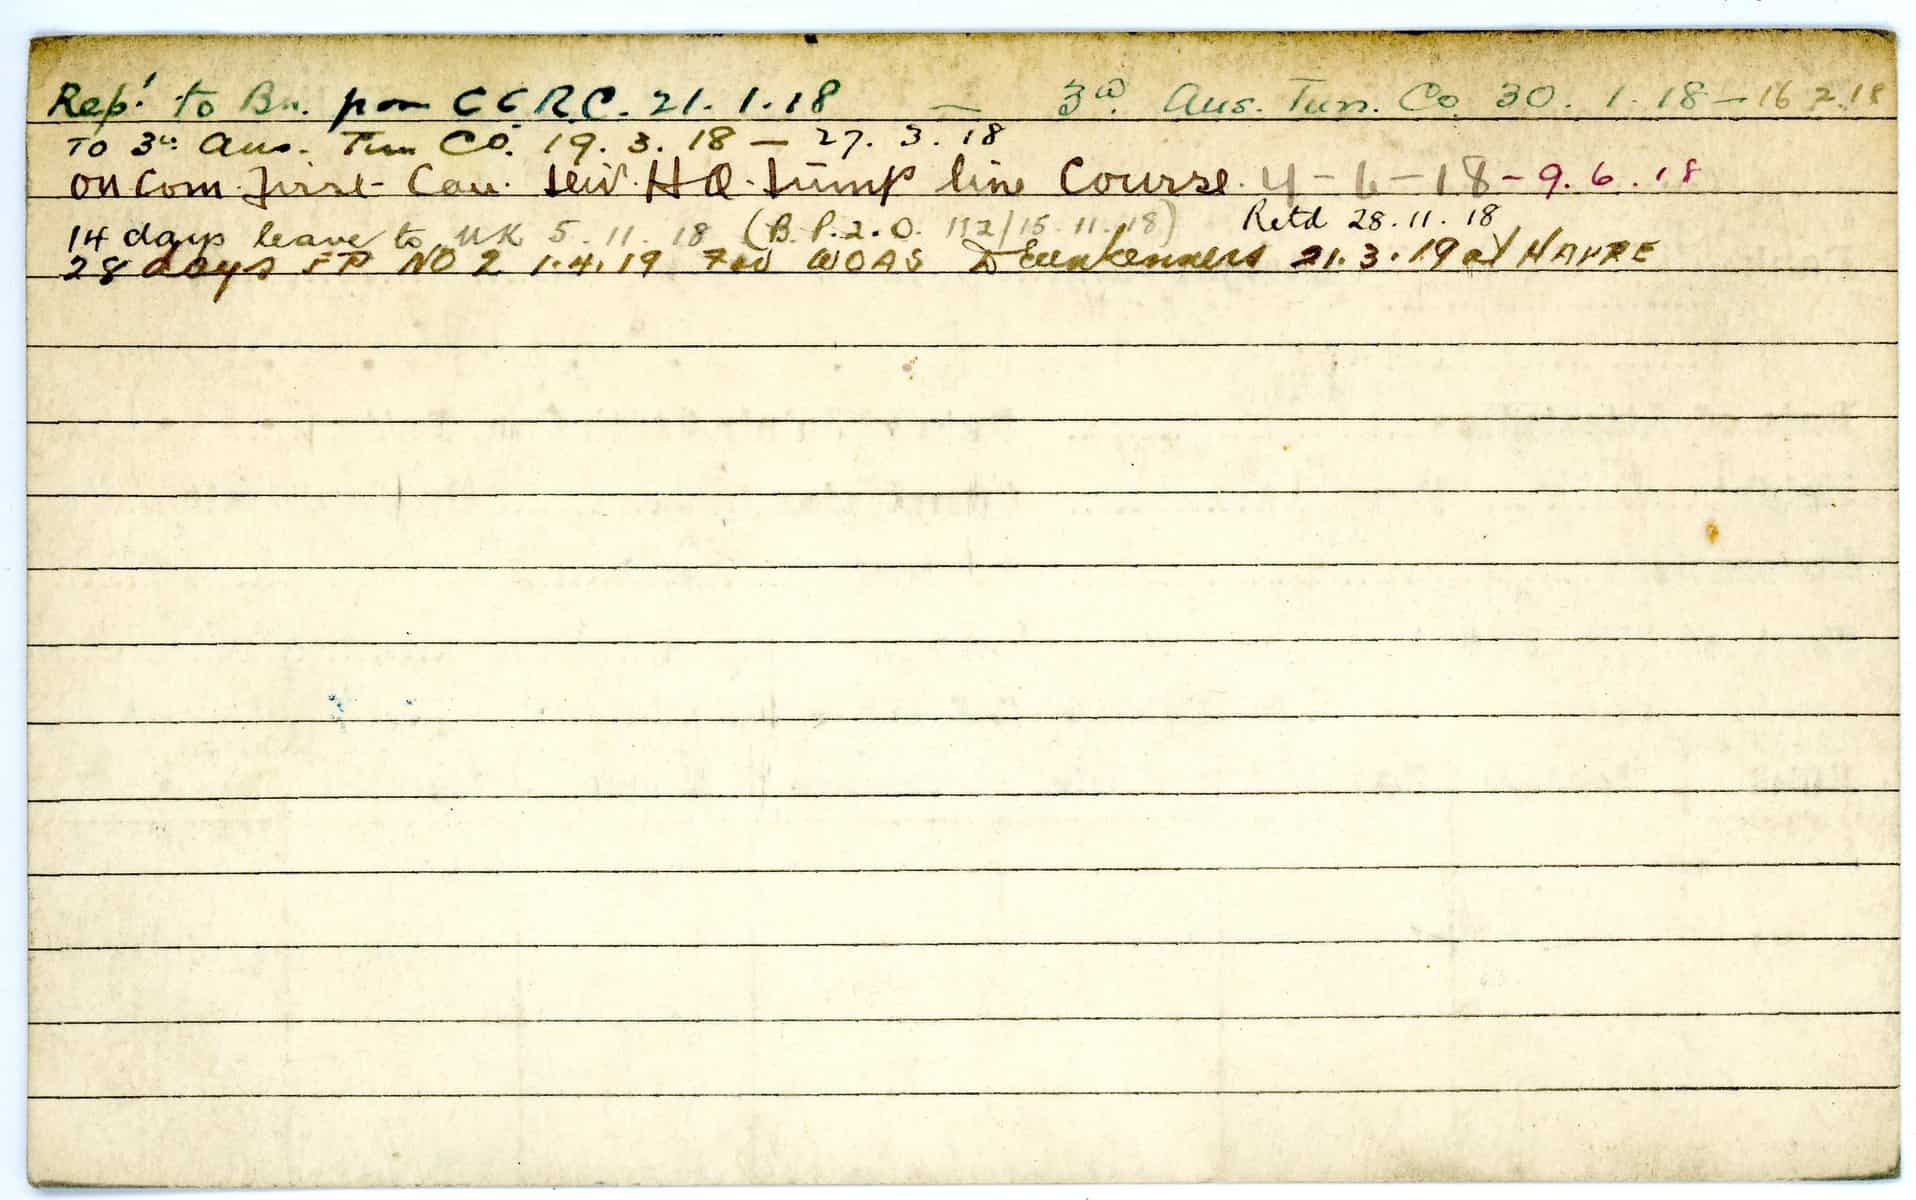 Rep! to Bn. from CCRC. 21.1.18 — 3rd. Aus. Tun. Co. 30.1.18 — 16 2.18
TO 3rd. Aus. Tun Co. 19.3.18 — 27.3.18
on Com. First Can. Div. HQ. Lump line Course. 4-6-18 - 9.6.18
14 days leave to UK 5.11.18 (B.P.2.O. 112/15.11.18) Retd 28.11.18
28 days FP NO 2 1.4.19 For WOAS Drunkenness 21.3.19 at HAVRE